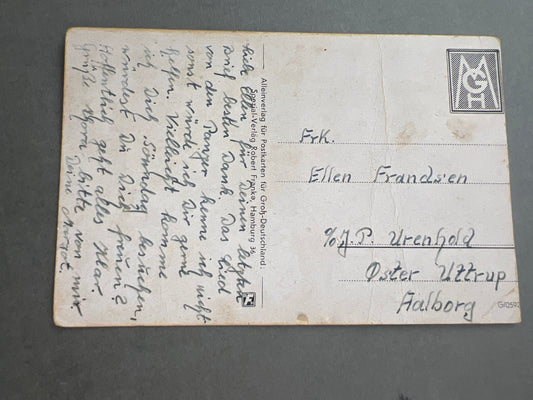 Liebe Ellen für Deinen letzten
Brief besten Dank. Das Lied
von den Panzer kenne ich nicht
sonst würde ich Dir gerne
helfen. Vielleicht komme
ich Dich Sonndag besuchen,
würdest Du Dich freuen?
Hoffentlich geht alles klar
Grüße Bjorn bitte von mir
Deine Margot.
Alleinverlag für Postkarten für Groß-Deutschland
Spezial-Verlag Robert Franke, Hamburg 36
MGH
Frk.
Ellen Frandsen
%J.P. Urenhold
Øster Uttrup
Aalborg